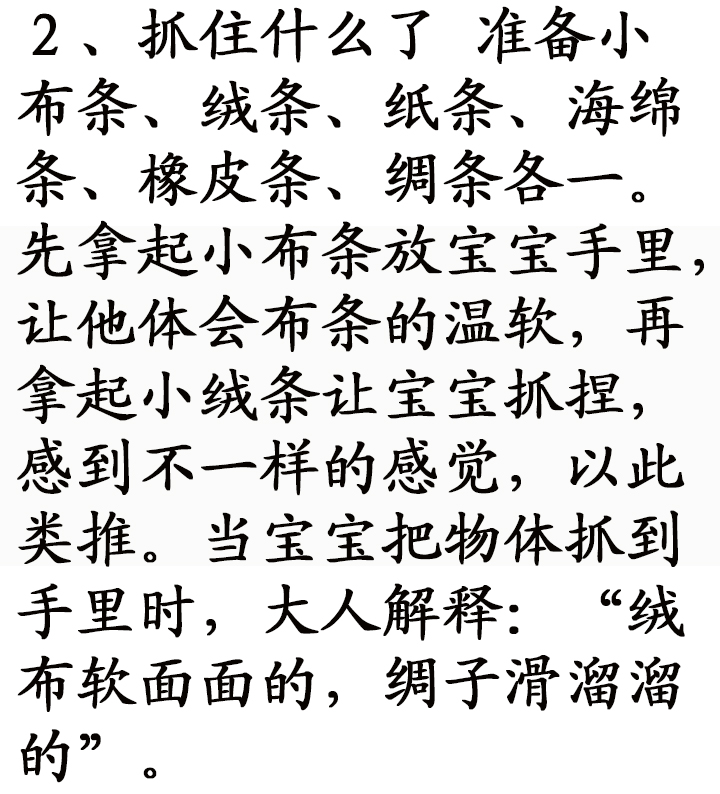 2、抓住什么了 准备小
布条、绒条、纸条、海绵
条、橡皮条、绸条各一。
先拿起小布条放宝宝手里，
让他体会布条的温软，再
拿起小绒条让宝宝抓捏，
感到不一样的感觉，以此
类推。当宝宝把物体抓到
手里时，大人解释：“绒
布软面面的，绸子滑溜溜
的”。